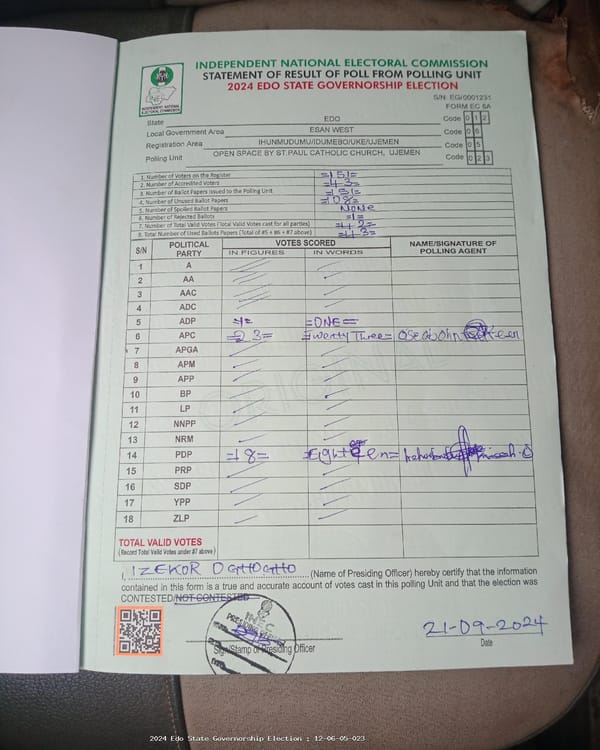 INDEPENDENT NATIONAL ELECTORAL COMMISSION
STATEMENT OF RESULT OF POLL FROM POLLING UNIT
2024 EDO STATE GOVERNORSHIP ELECTION
S/N: EG/0001231
FORM EC 8A
State EDO Code 0 1 2
Local Government Area ESAN WEST Code 0 6
Registration Area IHUNMUDUMU/IDUMEBO/UKE/UJEMEN Code 0 5
Polling Unit OPEN SPACE BY ST.PAUL CATHOLIC CHURCH, UJEMEN Code 0 2 3
1. Number of Voters on the Register =151=
2. Number of Accredited Voters =43=
3. Number of Ballot Papers Issued to the Polling Unit =151=
4. Number of Unused Ballot Papers =108=
5. Number of Spoiled Ballot Papers NONE
6. Number of Rejected Ballots =1=
7. Number of Total Valid Votes (Total Valid Votes cast for all parties) =42=
8. Total Number of Used Ballots Papers (Total of #5 + #6 + #7 above) =43=
S/N POLITICAL PARTY VOTES SCORED NAME/SIGNATURE OF POLLING AGENT
IN FIGURES IN WORDS
1 A
2 AA
3 AAC
4 ADC
5 ADP =ONE=
6 APC =23= =Twenty Three=
7 APGA
8 APM
9 APP
10 BP
11 LP
12 NNPP
13 NRM
14 PDP =18= =Eighteen=
15 PRP
16 SDP
17 YPP
18 ZLP
TOTAL VALID VOTES
(Record Total Valid Votes under #7 above)
I, IZEKOR (Name of Presiding Officer) hereby certify that the information
contained in this form is a true and accurate account of votes cast in this polling Unit and that the election was
CONTESTED/NOT CONTESTED
INEC
21-09-2024
Sign/Stamp of Presiding Officer
Date
2024 Edo State Governorship Election : 12-06-05-023